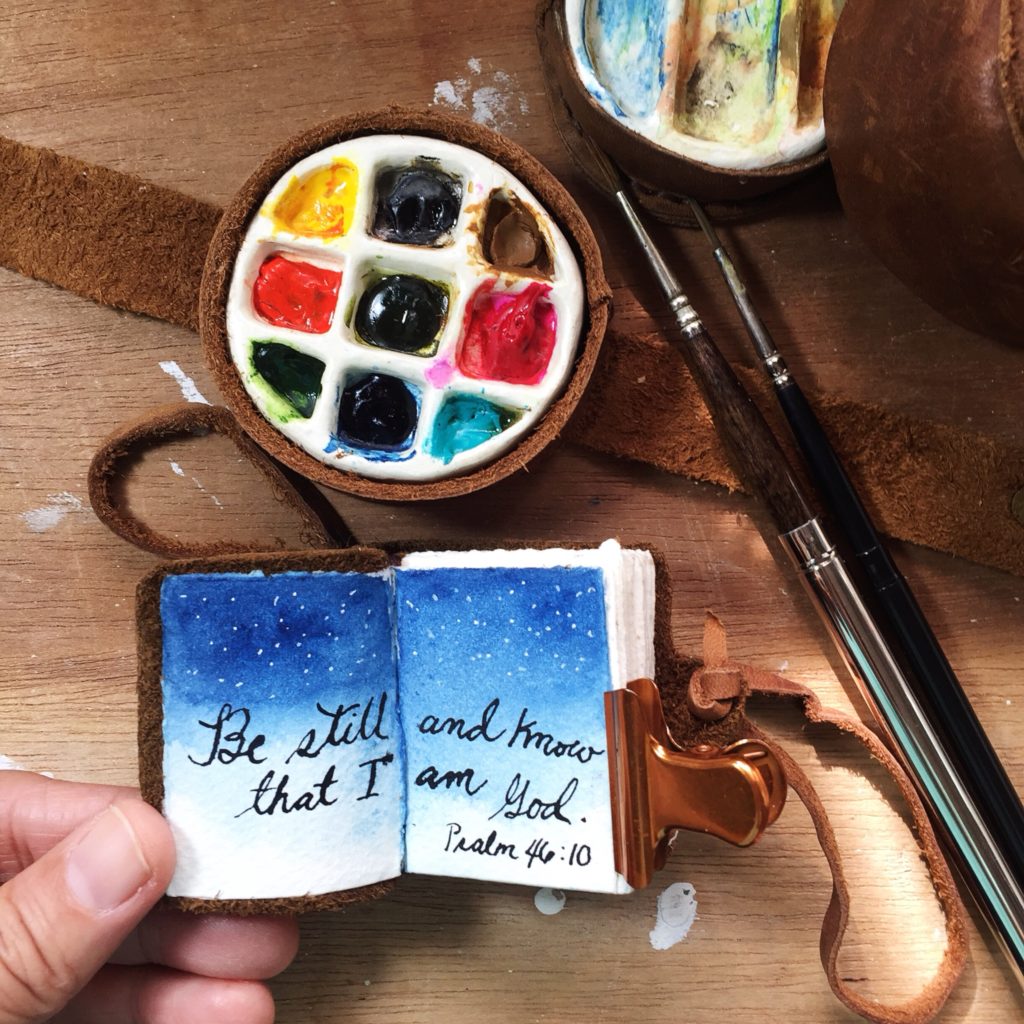 Be still and know
that I am God.
Psalm 46:10